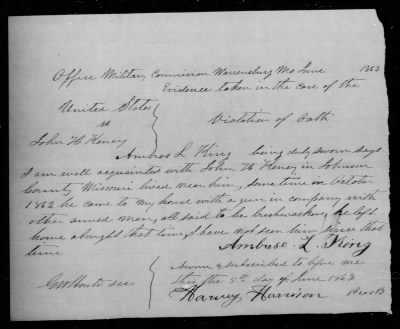 Office Military Commission Warrensburg Mo June 1863
Evidence taken in the case of the
United States
vs
John H Henry
Violation of Oath
Ambros L King being duly sworn says
I am well acquainted with John H Henry in Johnson
County Missouri lived near him, some time in October
1862 he came to my house with a gun in company with
other armed men, all said to be bushwackers, he left
home about that time, I have not seen him since that
time
Ambrose L. King
Sworn & subscribed to before me
this the 5th day of June 1863
Harvey Harrison